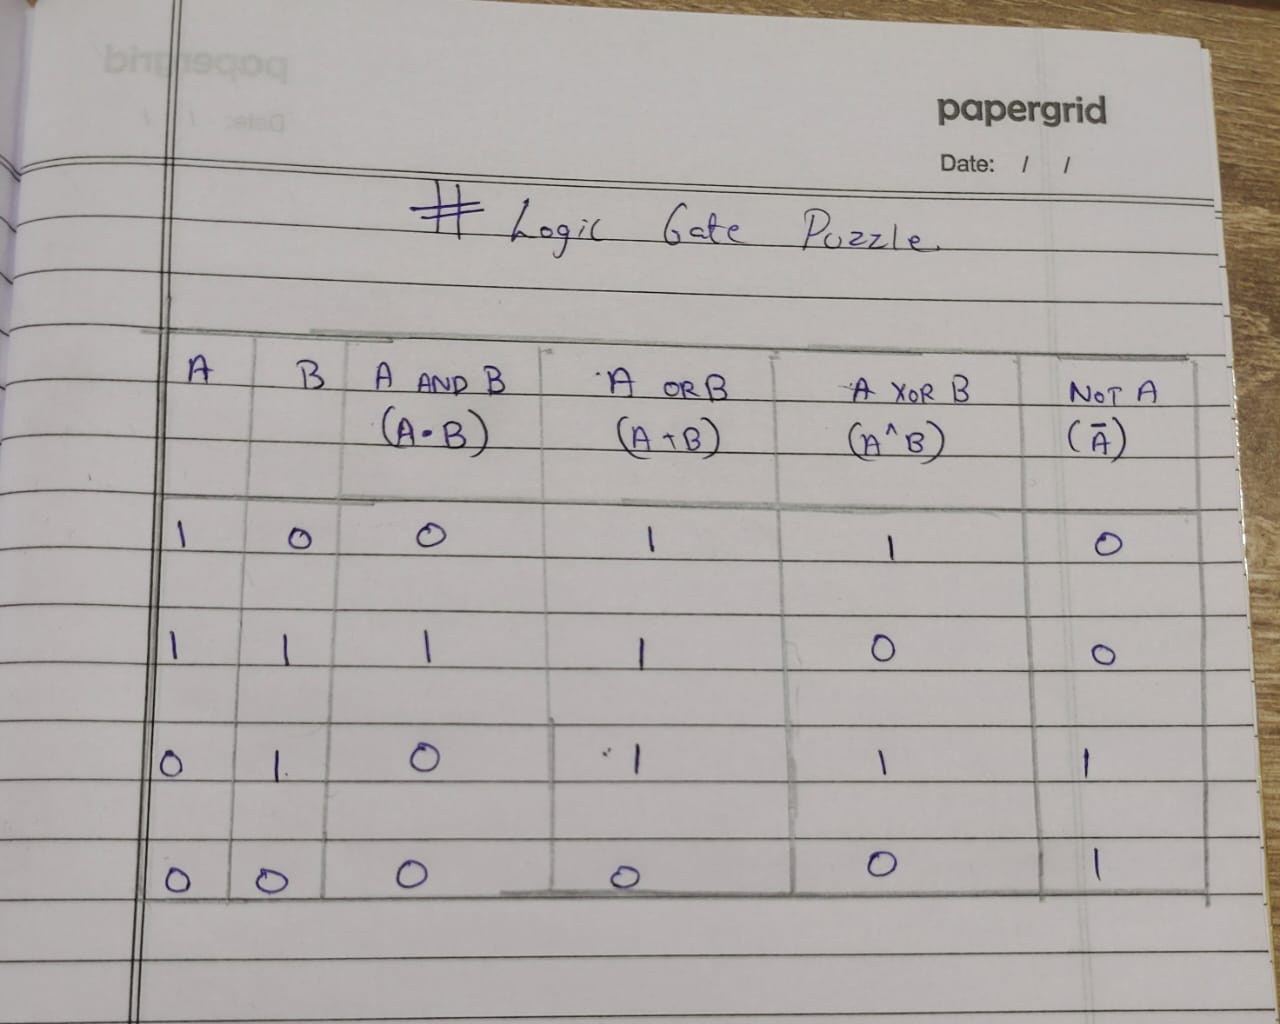 papergrid
Date: / /
# Logic Gate Puzzle.
A B A AND B A OR B A XOR B NOT A
(A·B) (A+B) (A^B) (Ā)
1 0 0 1 1 0
1 1 1 1 0 0
0 1 0 1 1 1
0 0 0 0 0 1